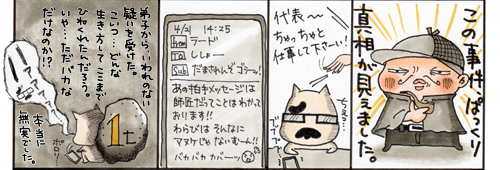 この事件、ぱっくり
真相が見えました。
代表〜
ちゃっちゃと
仕事して下さーい!
ちぇっ…
4/21 14:25
From ラード
To ししょー
Sub だまされんぞゴラーッ!
あの怕キメッセージは
師匠だってことはわかって
おります!!
わらびは そんなに
マヌケじゃ ないむーん!!
バカバカ カバーッ
弟子から、いわれのない
疑いを受けた。
こいつ…どんな
生き方してここまで
ひねくれたんだろう。
いや…ただバカな
だけなのか!?
1t
ポロッ
本当に
無実でした。